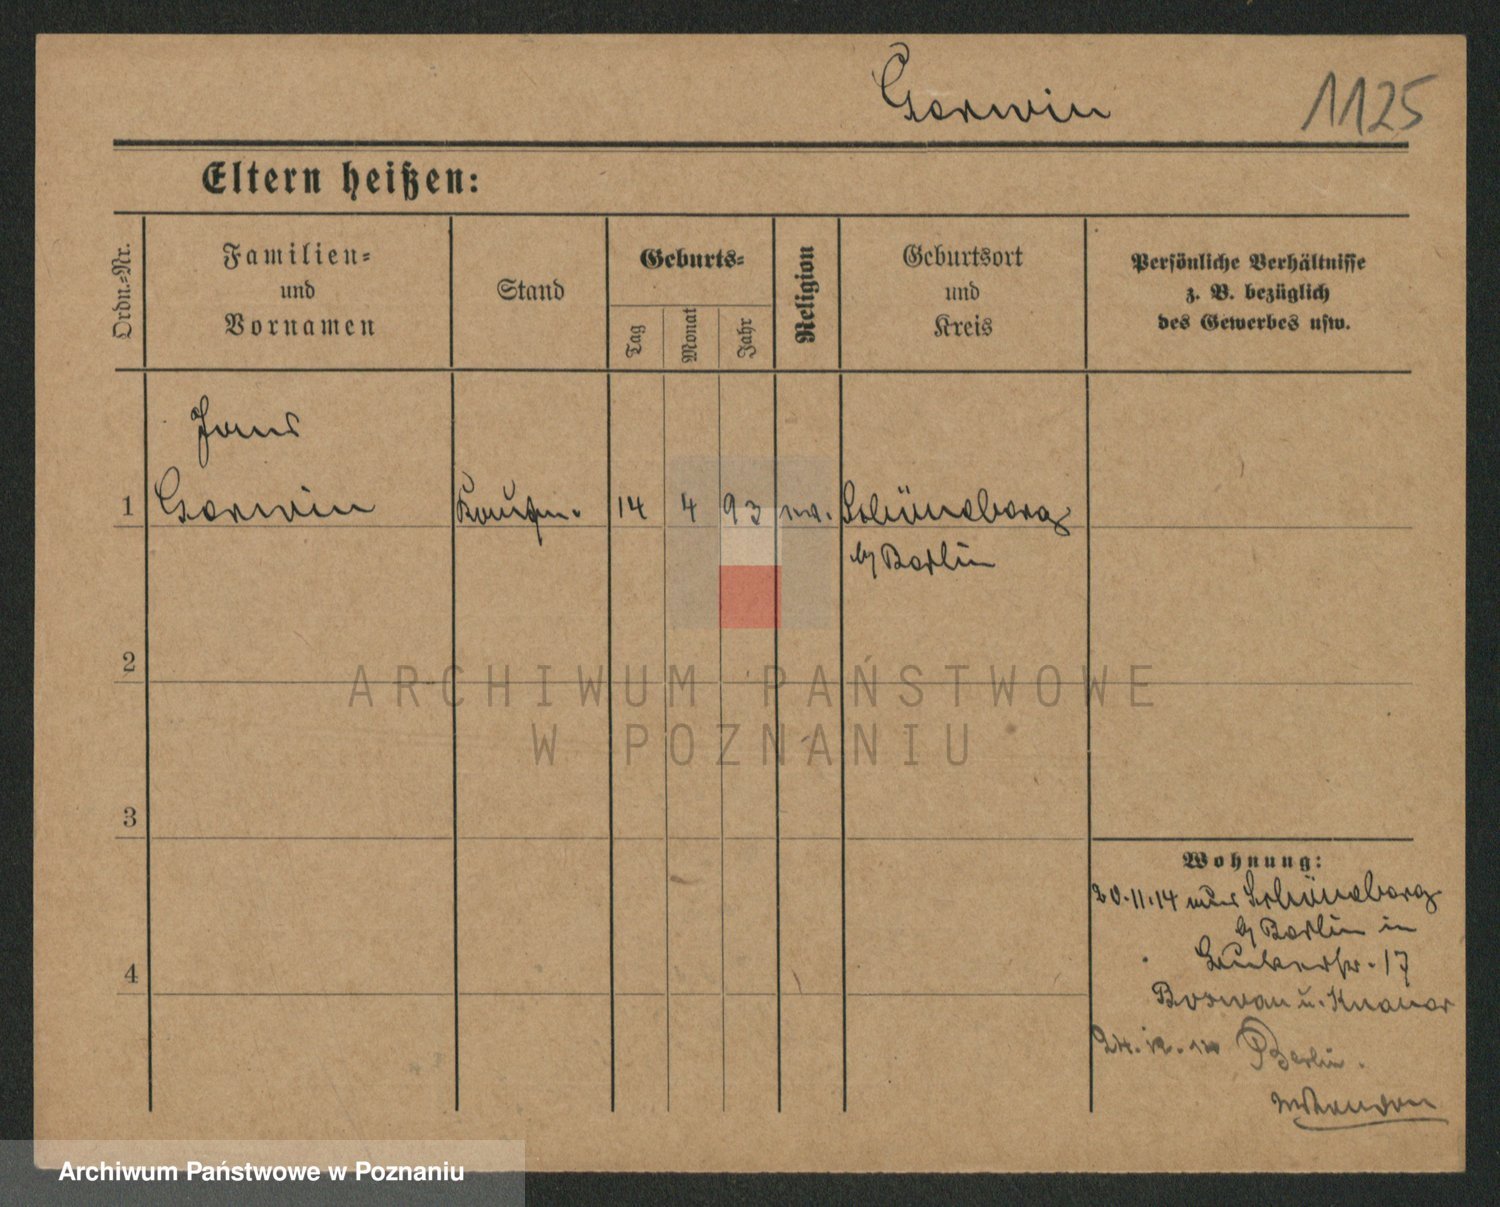 Gerwin
1125
Eltern heißen:
Ordn.-Nr.
Familien-
und
Vornamen
Stand
Geburts-
Tag
Monat
Jahr
Religion
Geburtsort
und
Kreis
Persönliche Verhältnisse
z. B. bezüglich
des Gewerbes usw.
Hans
1 Gerwin Kaufm. 14 4 93 ev. Schöneberg
b/ Berlin
2
3
4
Wohnung:
20.11.14 aus Schöneberg
b/ Berlin in
17
Boswau u. Knauer
Berlin.
ARCHIWUM PAŃSTWOWE
W POZNANIU
Archiwum Państwowe w Poznaniu